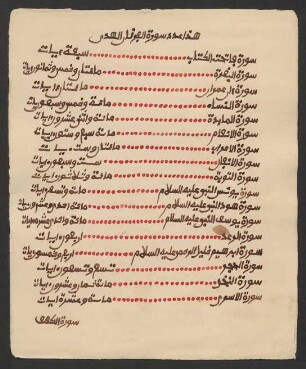 هذا عدد سورة القرءان
سورة فاتحة الكتاب سبعة ءايات
سورة البقرة مائتان وخمس وثمانون ءايات
سورة ءال عمران مائتان ءايات
سورة النساء مائة وخمس وسبعون ءايات
سورة المايدة مائة واثنى وعشرون ءايات
سورة الانعام مائة سبع وستون ءايات
سورة الاعراف مائتان وست ءايات
سورة الانفال ست وسبعون ءايات
سورة التوبة مائة وثلاثون ءايات
سورة يونس النبي عليه السلام مائة وتسع ءايات
سورة هود النبي عليه السلام مائة واحدى وعشرون ءايات
سورة يوسف النبي عليه السلام مائة واحدى عشرة ءايات
سورة الرعد اربعون ءايات
سورة ابرهيم خليل الرحمن عليه السلام اربع وخمسون ءايات
سورة الحجر تسع وتسعون ءايات
سورة النحل مائة ثمان وعشرون ءايات
سورة الاسرى مائة وعشرة ءايات
سورة الكهف